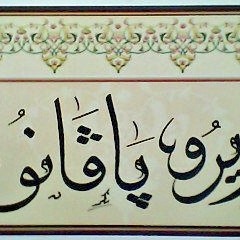 يرو پاڤانو